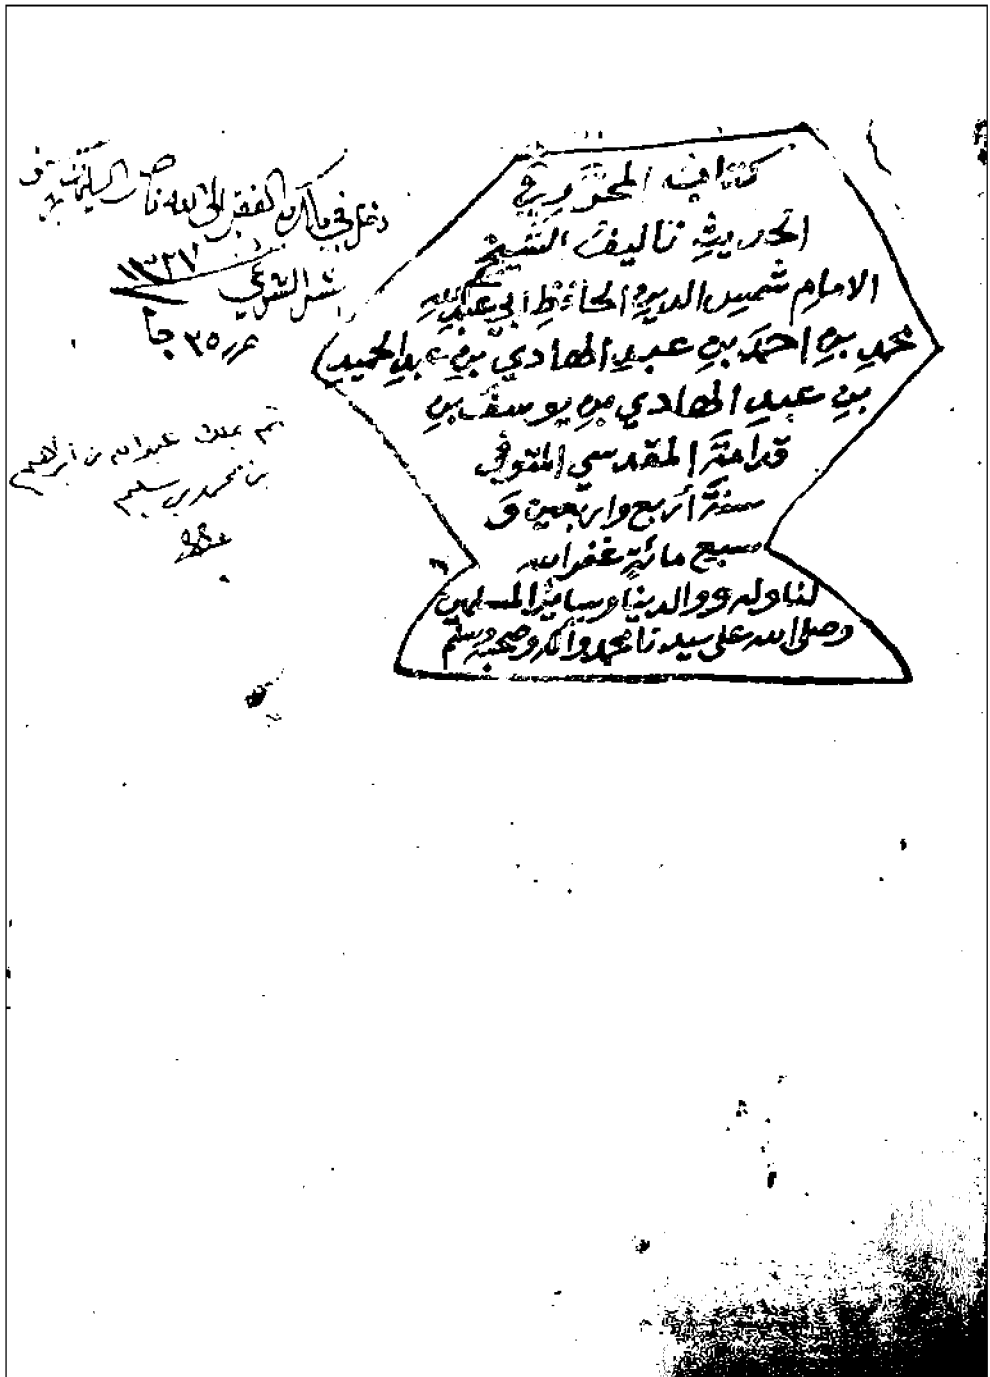 كتاب المحرر في
الحديث تاليف الشيخ
الامام شمس الدين الحافظ ابي عبدالله
محمد بن احمد بن عبد الهادي بن عبد الحميد
بن عبد الهادي بن يوسف بن
قدامة المقدسي المتوفي
سنة أربع واربعين و
سبع مائة غفر الله
لنا وله ووالدينا وسائر المسلمين
وصلى الله على سيدنا محمد وآله وصحبه وسلم
دخل في ملك الفقير الى الله
بالشراء الشرعي ١٣٢٧
حرر ٢٥ جا
ثم بملك عبدالله بن ابراهيم
بن محمد بن سليم